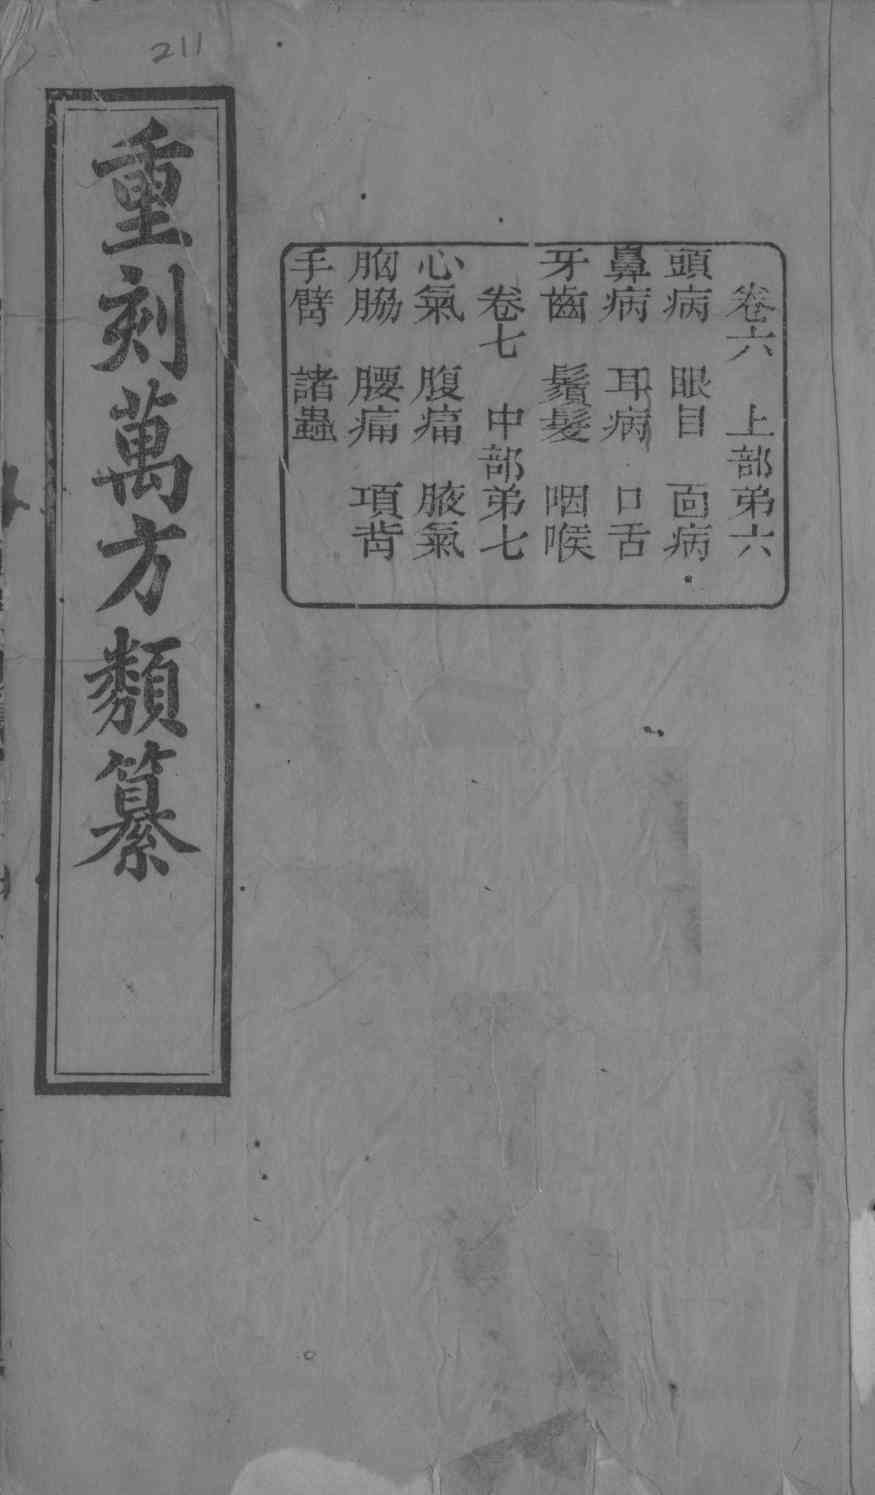 211
卷六　上部弟六
頭病　眼目　面病
鼻病　耳病　口舌
牙齒　鬚髮　咽喉
卷七　中部弟七
心氣　腹痛　腋氣
胸脇　腰痛　項背
手臂　諸蟲
重刻萬方類纂